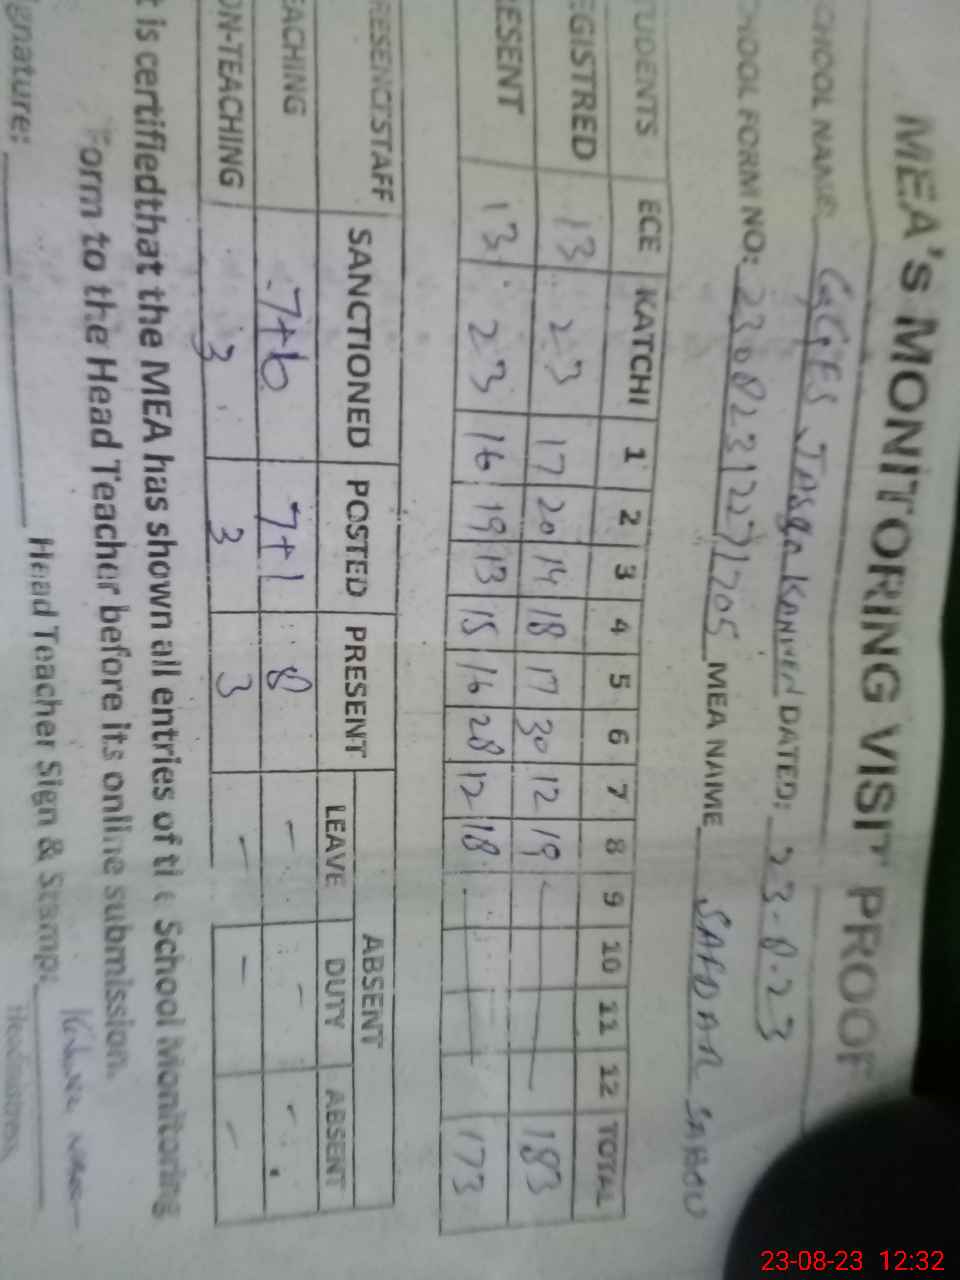 MEA's MONITORING VISIT PROOF
CHOOL NAME GGES JASgA KANWEN DATED: 23.8.23
CHOOL FORM NO: 23082312271205 MEA NAME SAFDAR SABOU
TUDENTS ECE KATCHI 1 2 3 4 5 6 7 8 9 10 11 12 TOTAL
EGISTRED 13 23 17 20 14 18 17 30 12 19 183
ESENT 13 23 16 19 13 15 16 28 12 18 173
RESENCTSTAFF SANCTIONED POSTED PRESENT ABSENT
LEAVE DUTY ABSENT
EACHING 7+6 7+1 8 - - -
ON-TEACHING 3 3 3 - - -
t is certifiedthat the MEA has shown all entries of the School Monitoring
Form to the Head Teacher before its online submission.
ignature: Head Teacher Sign & Stamp:
Headmistress
23-08-23 12:32